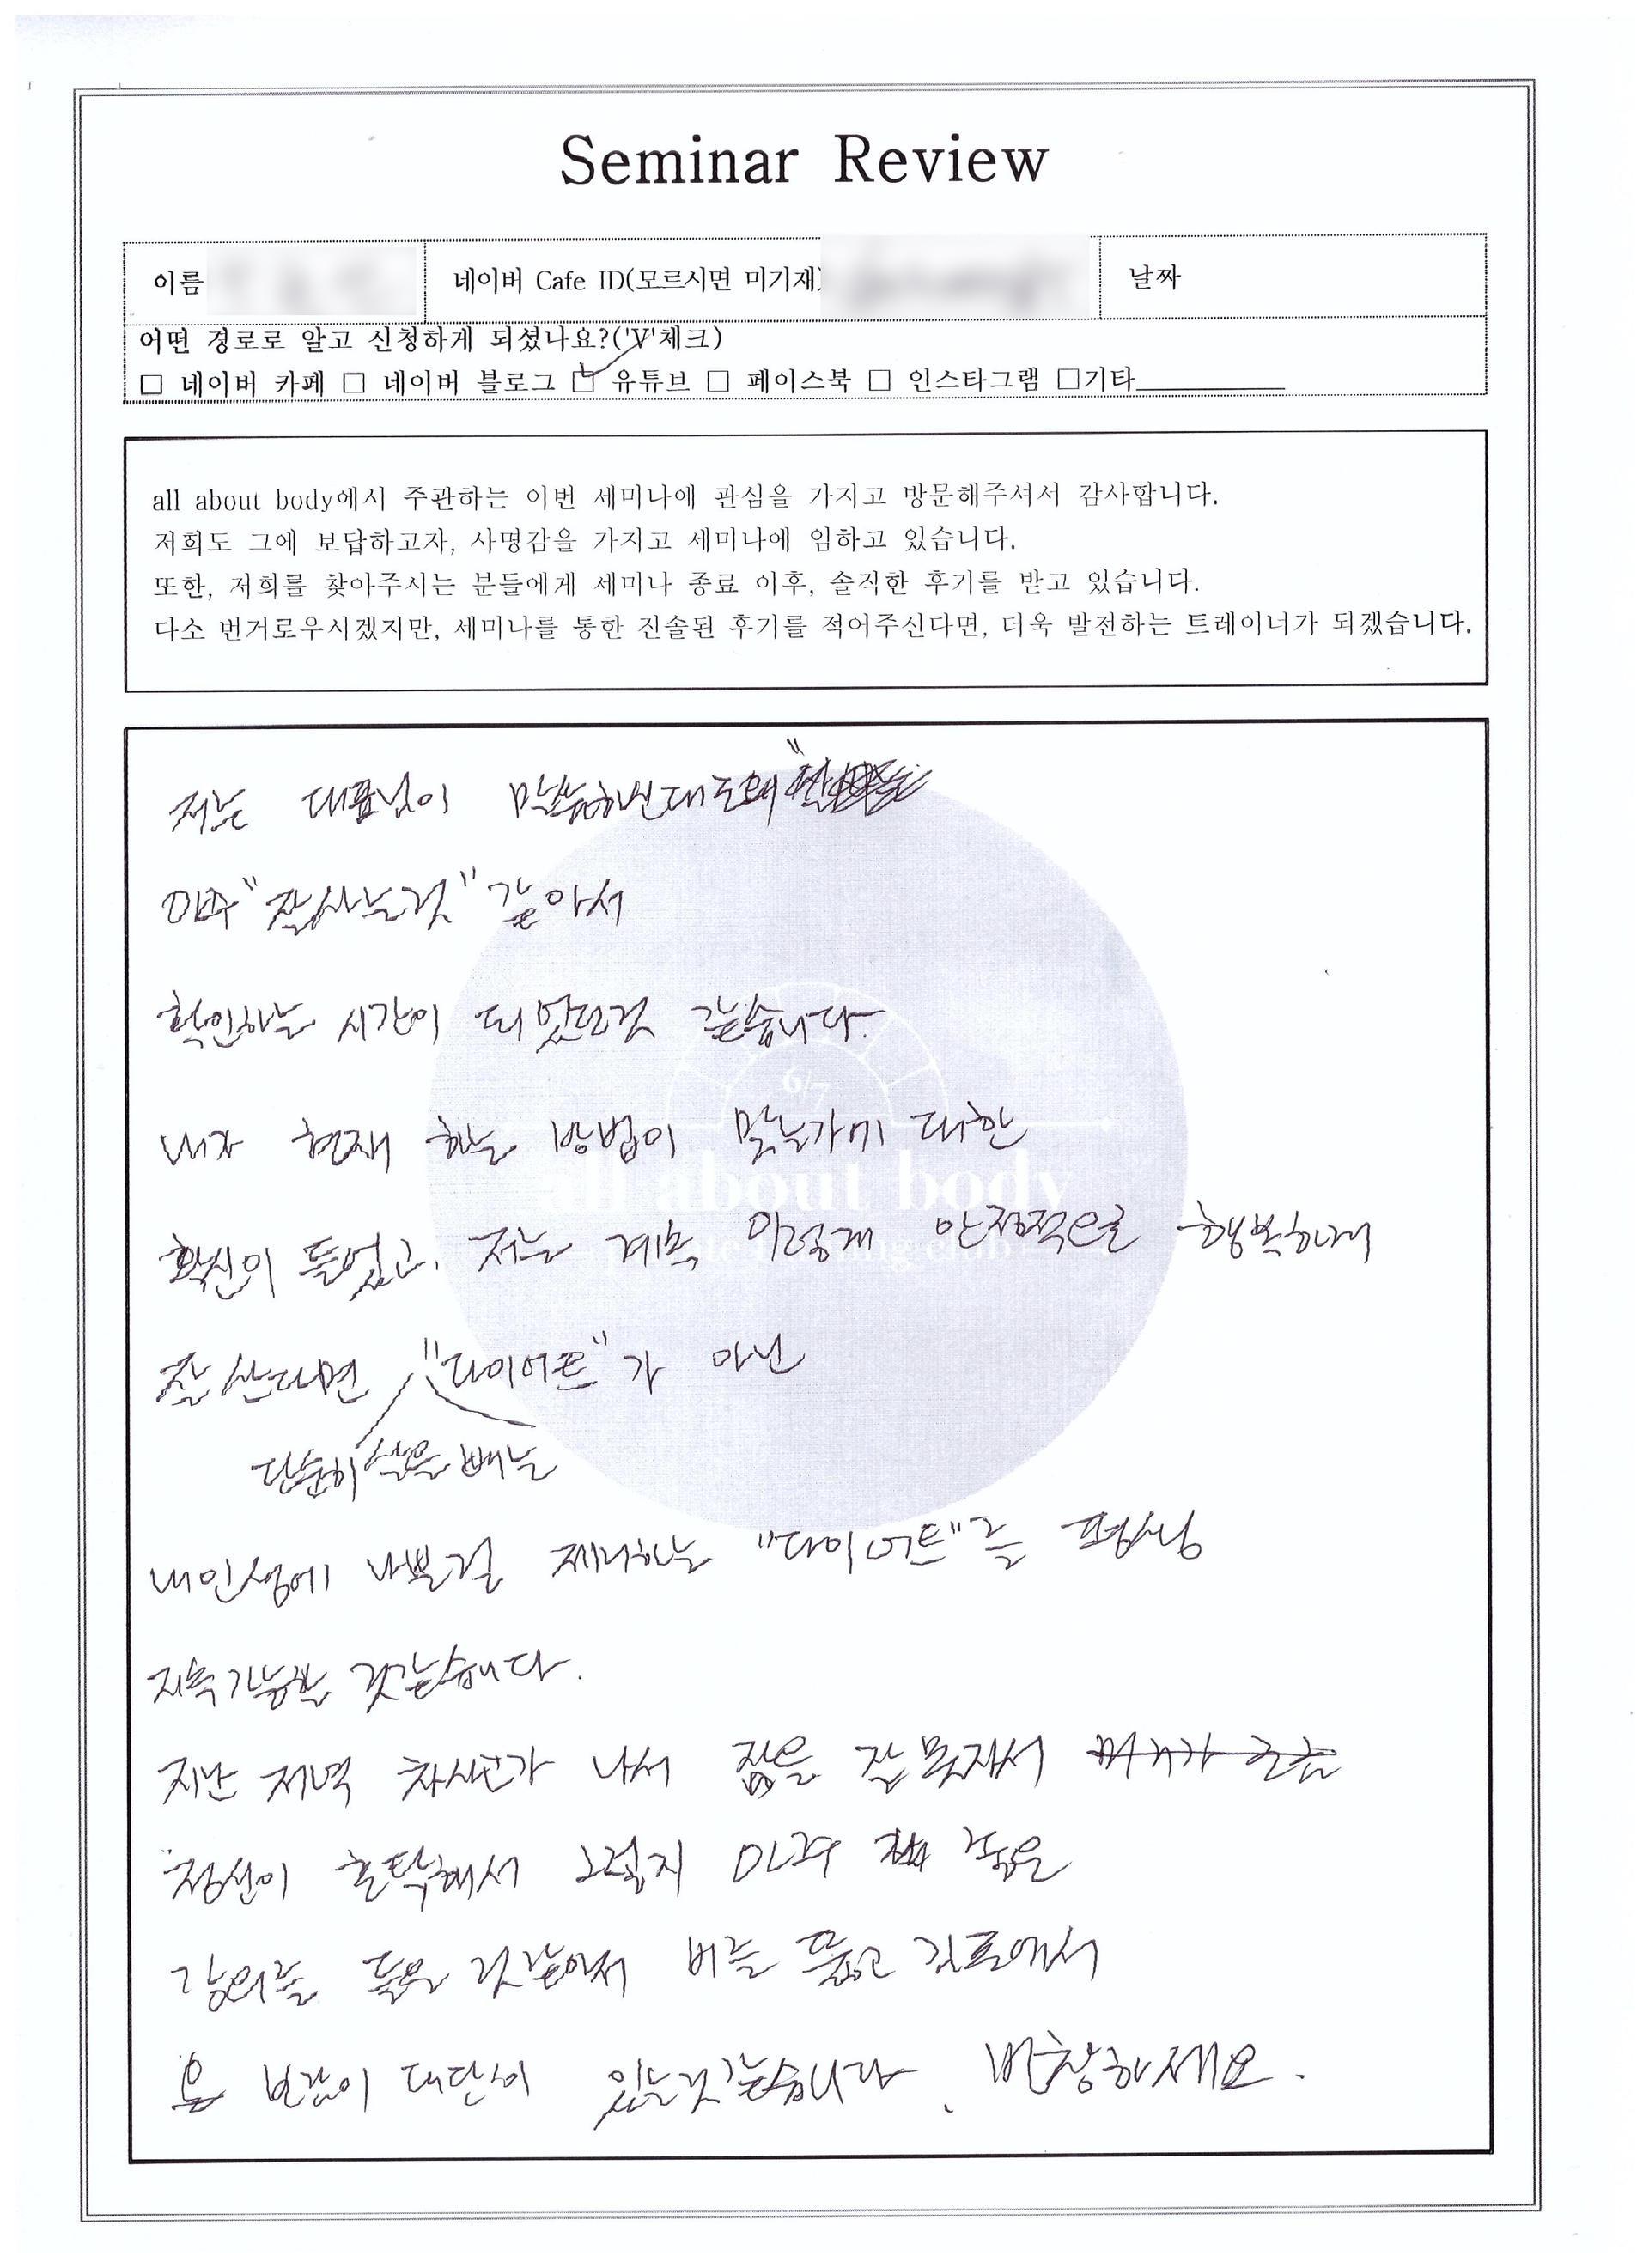 Seminar Review
이름 네이버 Cafe ID(모르시면 미기재) 날짜
어떤 경로로 알고 신청하게 되셨나요?('V'체크)
□ 네이버 카페 □ 네이버 블로그 ☑ 유튜브 □ 페이스북 □ 인스타그램 □기타
all about body에서 주관하는 이번 세미나에 관심을 가지고 방문해주셔서 감사합니다.
저희도 그에 보답하고자, 사명감을 가지고 세미나에 임하고 있습니다.
또한, 저희를 찾아주시는 분들에게 세미나 종료 이후, 솔직한 후기를 받고 있습니다.
다소 번거로우시겠지만, 세미나를 통한 진솔된 후기를 적어주신다면, 더욱 발전하는 트레이너가 되겠습니다.
저는 대표님이 말씀하신대로
"잘사는것" 같아서
확인하는 시간이 되었던것 같습니다.
내가 현재 하는 방법이 맞는가에 대한
확신이 들었고, 저는 계속 이렇게 안정적으로 행복하게
잘 산다면 "다이어트"가 아닌
단순히 살을 빼는
내 인생에 나쁜걸 제거하는 "다이어트"를 평생
지속가능할 것같습니다.
지난 저녁 차사고가 나서 잠을 잘 못자서
정신이 혼탁해서 그렇지 아주 좋은
강의를 들은 것같아서 비를 뚫고 김포에서
온 보람이 대단이 있는것같습니다. 번창하세요.
6/7
all about body